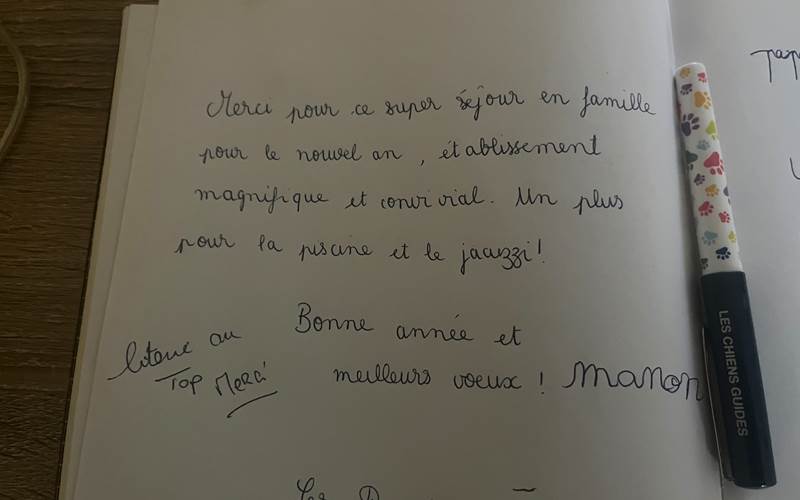 Merci pour ce super séjour en famille
pour le nouvel an, établissement
magnifique et convivial. Un plus
pour la piscine et le jacuzzi!
Bonne année et
meilleurs voeux ! Manon
au
TOP Merci
LES CHIENS GUIDES